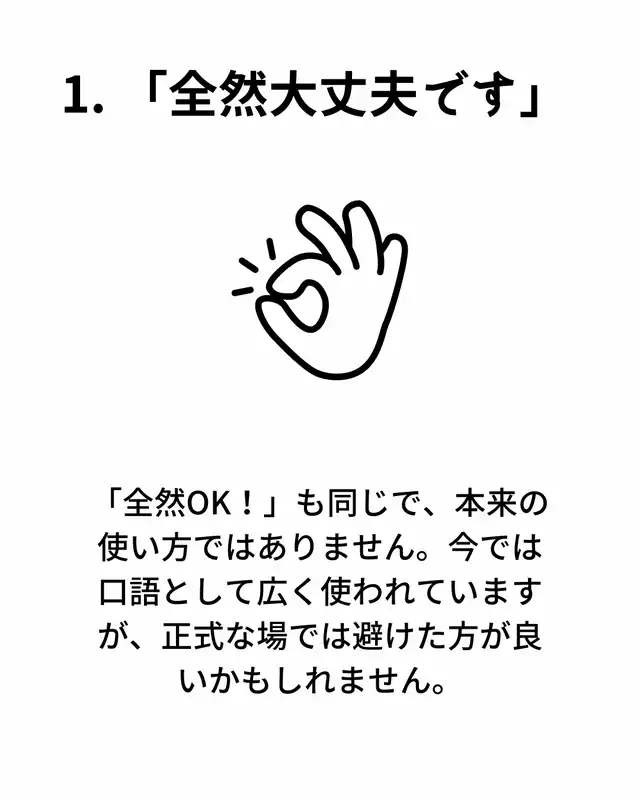 1. 「全然大丈夫です」
「全然OK！」も同じで、本来の
使い方ではありません。今では
口語として広く使われています
が、正式な場では避けた方が良
いかもしれません。